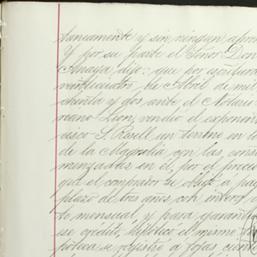 táneamente y sin ningun apre
Y por su parte el Señor Don
Anaya dijo: que por escritura
veintiocho, de Abril de mil
chenta y dos ante el Notario
riano Leon, vendió el exponen
cisco S. Rosell un terreno en t
de la Magnolia con las cons
menzadas en él, por el precio
que el comprador se obligó a pag
plazo de tres años con interes
to mensual, y para garantí
se crédito, hipotecó el mismo
poteca se registró a fojas cien